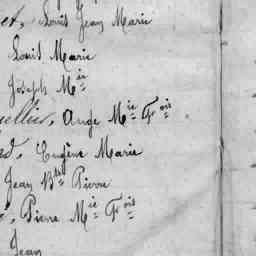 et, Louis Jean Marie
Louis Marie
Joseph Mie
ellier, Ange Mie Fois
Eugène Marie
Jean Bte Pierre
Pierre Mie Fois
Jean